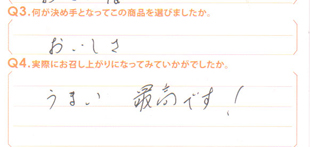 Q3.何が決め手となってこの商品を選びましたか。
おいしさ
Q4.実際にお召し上がりになってみていかがでしたか。
うまい 最高です!